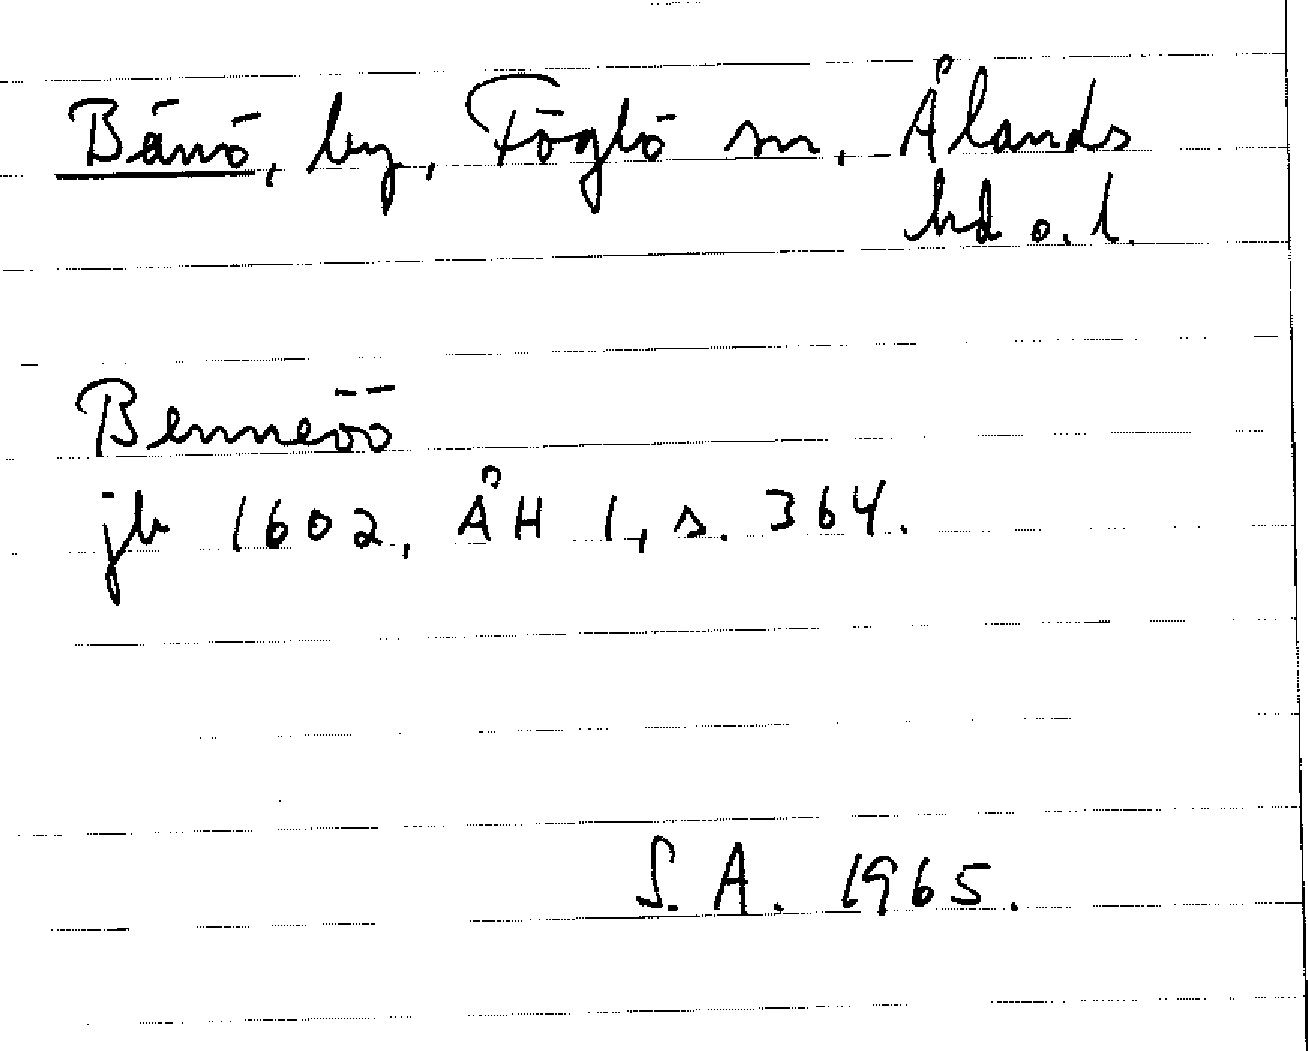 Bänö, by, Föglö sn, Ålands
hd o. l.
Benneöö
jb 1602, ÅH 1, s. 364.
S. A. 1965.